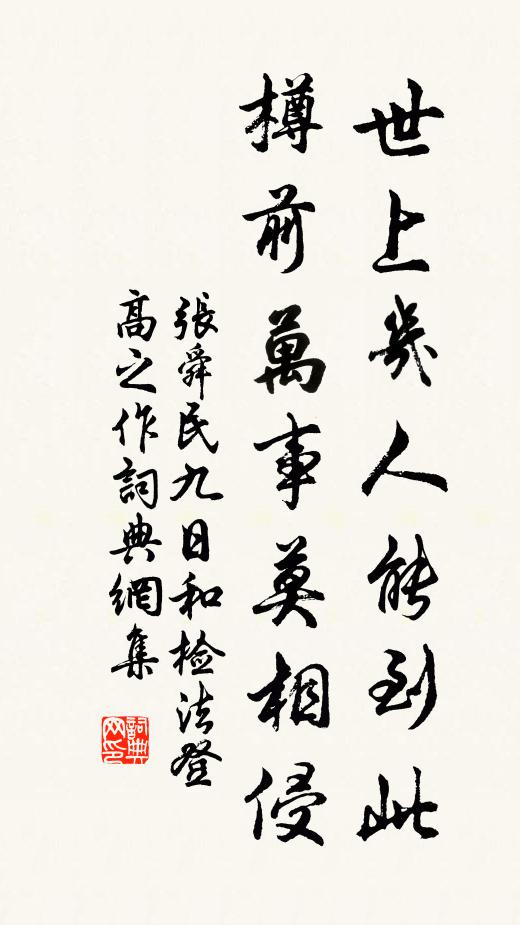 世上幾人能到此
樽前萬事莫相侵
張舜民九日和檢法登
高之作詞典網集
詞典
网印